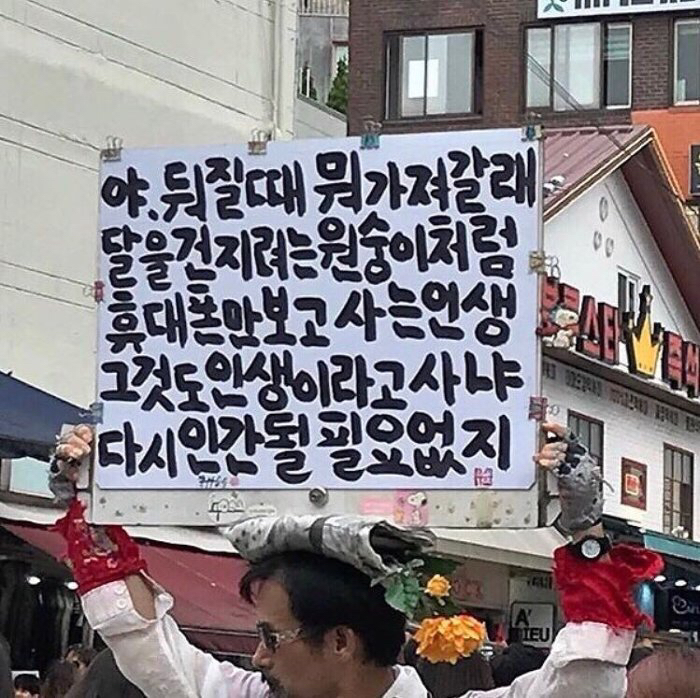 야. 뒤질때 뭐가져갈래
달을건지려는원숭이처럼
휴대폰만보고 사는인생
그것도인생이라고사냐
다시인간될필요없지